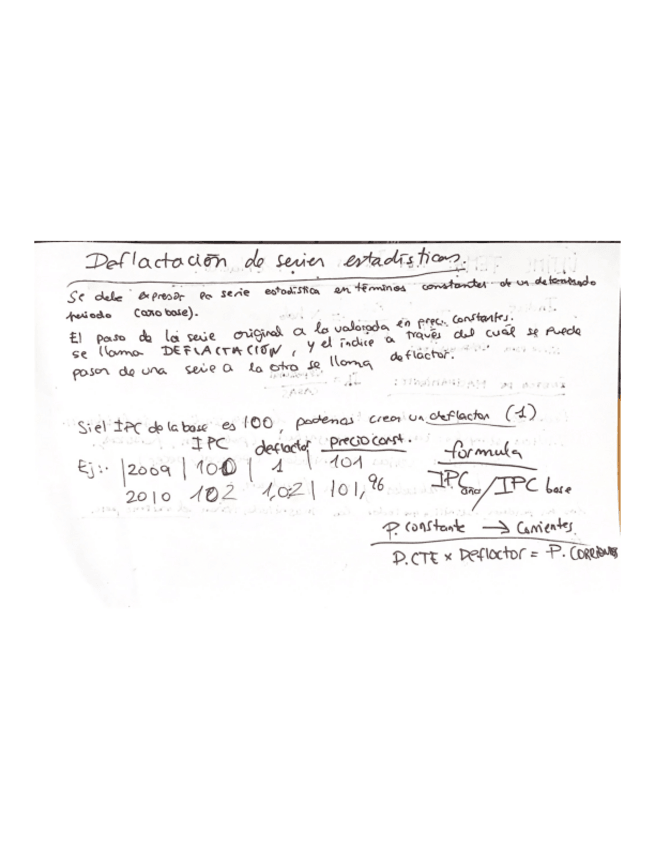 Deflactación de series estadísticas.
Se debe expresar la serie estadística en términos constantes de un determinado
periodo (año base).
El paso de la serie original a la valorada en prec. constantes.
se llama DEFLACTACIÓN, y el índice a través del cuál se puede
pasar de una serie a la otra se llama deflactor.
Si el IPC de la base es 100, podemos crear un deflactor (1)
IPC deflactor precio const. formula
Ej:. |2009 | 100 | 1 | 101
2010 102 1,02 | 101,96
IPC año / IPC base
P. constante → Corrientes
P.CTE x Deflactor = P. CORRIENTES